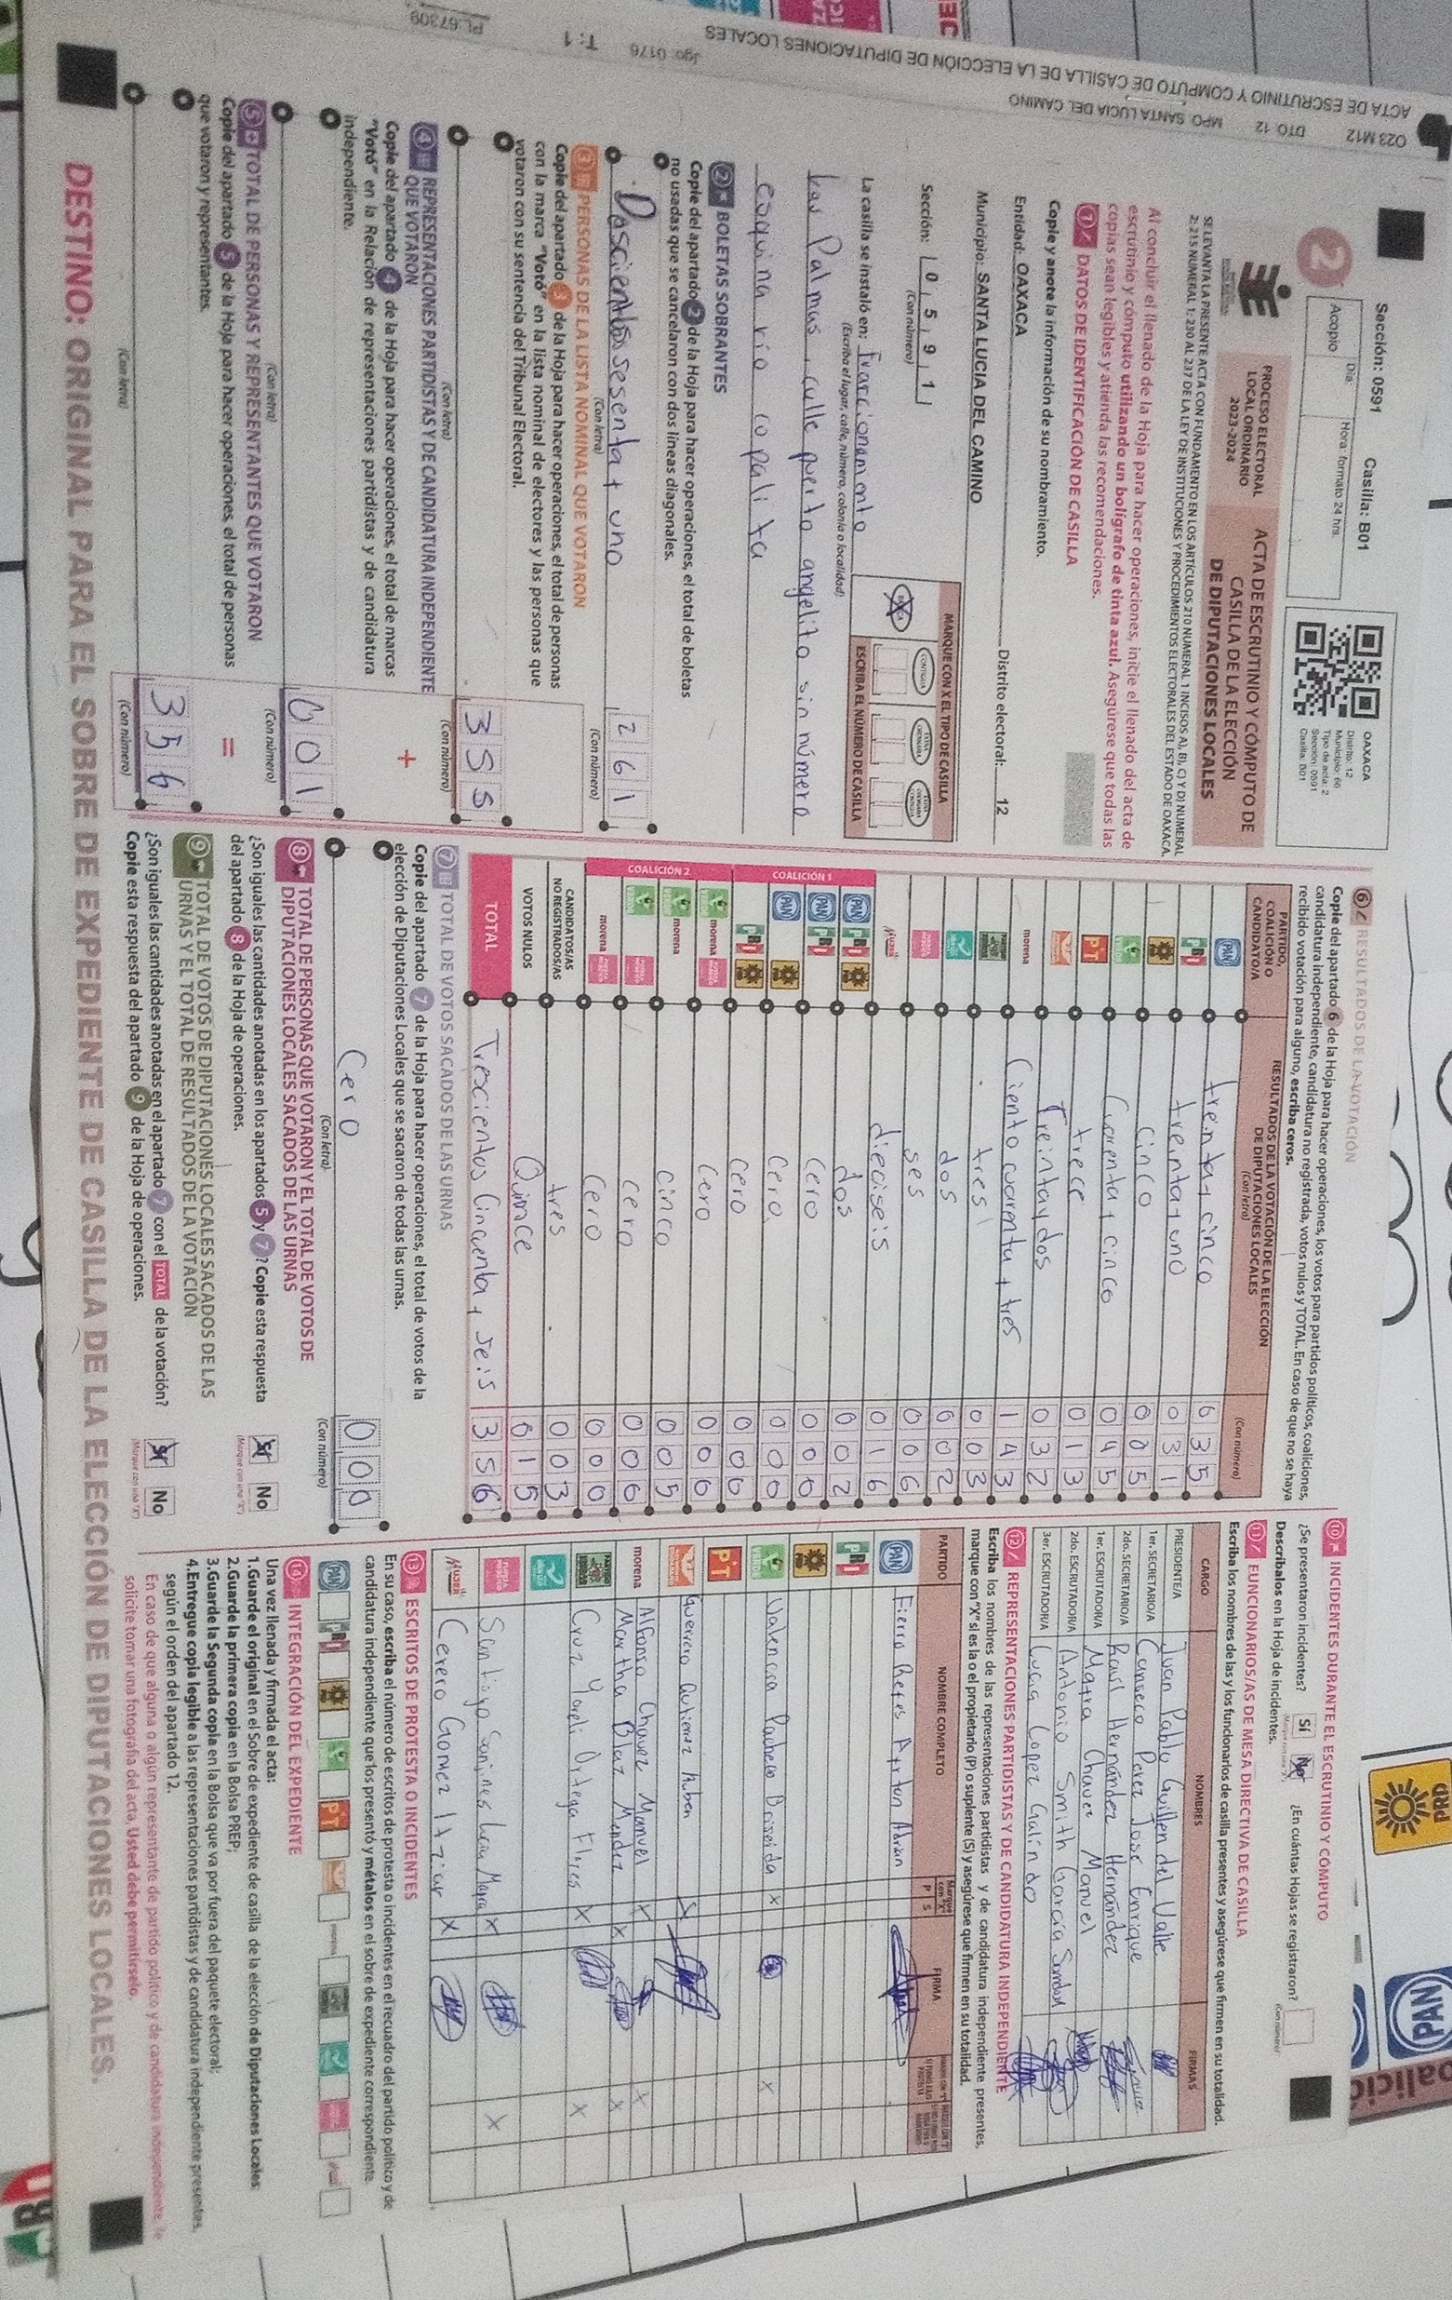 Sección: 0591 Casilla: B01
Acopio
Día:
Hora: formato 24 hrs.
2
OAXACA
Distrito: 12
Municipio: 66
Tipo de acta: 2
Sección: 0591
Casilla: B01
PROCESO ELECTORAL
LOCAL ORDINARIO
2023-2024
ACTA DE ESCRUTINIO Y CÓMPUTO DE
CASILLA DE LA ELECCIÓN
DE DIPUTACIONES LOCALES
SE LEVANTA LA PRESENTE ACTA CON FUNDAMENTO EN LOS ARTÍCULOS 210 NUMERAL 1 INCISOS A), B), C) Y D) NUMERAL
2; 215 NUMERAL 1; 230 AL 237 DE LA LEY DE INSTITUCIONES Y PROCEDIMIENTOS ELECTORALES DEL ESTADO DE OAXACA.
Al concluir el llenado de la Hoja para hacer operaciones, inicie el llenado del acta de
escrutinio y cómputo utilizando un bolígrafo de tinta azul. Asegúrese que todas las
copias sean legibles y atienda las recomendaciones.
1 DATOS DE IDENTIFICACIÓN DE CASILLA
Copie y anote la información de su nombramiento.
Entidad: OAXACA Distrito electoral: 12
Municipio: SANTA LUCIA DEL CAMINO
Sección: 0 5 9 1
(Con número)
MARQUE CON X EL TIPO DE CASILLA
ESCRIBA EL NÚMERO DE CASILLA
La casilla se instaló en: Fraccionamiento
(Escriba el lugar, calle, número, colonia o localidad)
Las Palmas, calle puerto angelito sin número
esquina río copalita
2 BOLETAS SOBRANTES
Copie del apartado 2 de la Hoja para hacer operaciones, el total de boletas
no usadas que se cancelaron con dos líneas diagonales.
Doscientos sesenta y uno 2 6 1
(Con letra) (Con número)
3 PERSONAS DE LA LISTA NOMINAL QUE VOTARON
Copie del apartado 3 de la Hoja para hacer operaciones, el total de personas
con la marca "Votó" en la lista nominal de electores y las personas que
votaron con su sentencia del Tribunal Electoral.
3 5 5
(Con letra) (Con número)
4 REPRESENTACIONES PARTIDISTAS Y DE CANDIDATURA INDEPENDIENTE
QUE VOTARON
Copie del apartado 4 de la Hoja para hacer operaciones, el total de marcas
"Votó" en la Relación de representaciones partidistas y de candidatura
independiente.
+
0 0 1
(Con letra) (Con número)
5 TOTAL DE PERSONAS Y REPRESENTANTES QUE VOTARON
Copie del apartado 5 de la Hoja para hacer operaciones, el total de personas
que votaron y representantes.
=
3 5 6
(Con letra) (Con número)
6 RESULTADOS DE LA VOTACIÓN
Copie del apartado 6 de la Hoja para hacer operaciones, los votos para partidos políticos, coaliciones,
candidatura independiente, candidatura no registrada, votos nulos y TOTAL. En caso de que no se haya
recibido votación para alguno, escriba ceros.
PARTIDO,
COALICIÓN O
CANDIDATO/A
RESULTADOS DE LA VOTACIÓN DE LA ELECCIÓN
DE DIPUTACIONES LOCALES
(Con letra)
(Con número)
PAN treinta y cinco 0 3 5
PRI treinta y uno 0 3 1
PRD cinco 0 0 5
VERDE Cuarenta y cinco 0 4 5
PT trece 0 1 3
Treinta y dos 0 3 2
morena Ciento cuarenta y tres 1 4 3
tres 0 0 3
dos 0 0 2
ses 0 0 6
Mujer dieciseis 0 1 6
COALICIÓN 1
PAN PRI PRD dos 0 0 2
PAN PRI cero 0 0 0
PAN PRD cero 0 0 0
PRI PRD cero 0 0 0
COALICIÓN 2
VERDE morena cero 0 0 0
VERDE morena cinco 0 0 5
VERDE cero 0 0 0
morena cero 0 0 0
CANDIDATOS/AS
NO REGISTRADOS/AS tres 0 0 3
VOTOS NULOS Quince 0 1 5
TOTAL Trescientos Cincuenta y Seis 3 5 6
7 TOTAL DE VOTOS SACADOS DE LAS URNAS
Copie del apartado 7 de la Hoja para hacer operaciones, el total de votos de la
elección de Diputaciones Locales que se sacaron de todas las urnas.
Cero 0 0 0
(Con letra) (Con número)
8 TOTAL DE PERSONAS QUE VOTARON Y EL TOTAL DE VOTOS DE
DIPUTACIONES LOCALES SACADOS DE LAS URNAS
¿Son iguales las cantidades anotadas en los apartados 5 y 7? Copie esta respuesta
del apartado 8 de la Hoja de operaciones.
Sí No
(Marque con una "X")
9 TOTAL DE VOTOS DE DIPUTACIONES LOCALES SACADOS DE LAS
URNAS Y EL TOTAL DE RESULTADOS DE LA VOTACIÓN
¿Son iguales las cantidades anotadas en el apartado 7 con el TOTAL de la votación?
Copie esta respuesta del apartado 9 de la Hoja de operaciones.
Sí No
(Marque con una "X")
10 INCIDENTES DURANTE EL ESCRUTINIO Y CÓMPUTO
¿Se presentaron incidentes? Sí No ¿En cuántas Hojas se registraron?
(Con número)
Descríbalos en la Hoja de incidentes.
11 FUNCIONARIOS/AS DE MESA DIRECTIVA DE CASILLA
Escriba los nombres de las y los funcionarios de casilla presentes y asegúrese que firmen en su totalidad.
CARGO NOMBRES FIRMAS
PRESIDENTE/A Juan Pablo Guillen del Valle
1er. SECRETARIO/A Canseco Perez Jose Enrique
2do. SECRETARIO/A Raúl Hernández Hernández
1er. ESCRUTADOR/A Matra Chavez Manuel
2do. ESCRUTADOR/A Antonio Smith García Sunday
3er. ESCRUTADOR/A Lucia Lopez Galindo
12 REPRESENTACIONES PARTIDISTAS Y DE CANDIDATURA INDEPENDIENTE
Escriba los nombres de las representaciones partidistas y de candidatura independiente presentes,
marque con "X" si es la o el propietario (P) o suplente (S) y asegúrese que firmen en su totalidad.
PARTIDO NOMBRE COMPLETO P S FIRMA
PAN Fierro Reyes Ayrton Adrian
PRI
PRD
VERDE Valencia Pacheco Briseida X X
PT
Guerrero Gutierrez Ruben X
morena Alfonso Chavez Manuel X X
Martha Blaz Mendez X X
Cruz Yaneli Ortega Flores X X
Santiago Sanjines Leon Mayra X X
Mujer Cerero Gomez Itziar X
13 ESCRITOS DE PROTESTA O INCIDENTES
En su caso, escriba el número de escritos de protesta o incidentes en el recuadro del partido político y de
candidatura independiente que los presentó y métalos en el sobre de expediente correspondiente.
PAN PRI PRD VERDE PT
14 INTEGRACIÓN DEL EXPEDIENTE
Una vez llenada y firmada el acta:
1.Guarde el original en el Sobre de expediente de casilla de la elección de Diputaciones Locales;
2.Guarde la primera copia en la Bolsa PREP;
3.Guarde la Segunda copia en la Bolsa que va por fuera del paquete electoral;
4.Entregue copia legible a las representaciones partidistas y de candidatura independiente presentes,
según el orden del apartado 12.
En caso de que alguna o algún representante de partido político y de candidatura independiente, le
solicite tomar una fotografía del acta, Usted debe permitírselo.
DESTINO: ORIGINAL PARA EL SOBRE DE EXPEDIENTE DE CASILLA DE LA ELECCIÓN DE DIPUTACIONES LOCALES.
O23 M12 DTO. 12 MPO. SANTA LUCIA DEL CAMINO
ACTA DE ESCRUTINIO Y CÓMPUTO DE CASILLA DE LA ELECCIÓN DE DIPUTACIONES LOCALES
Jgo. 0176 T: 1 PL-67309
PRD
PAN